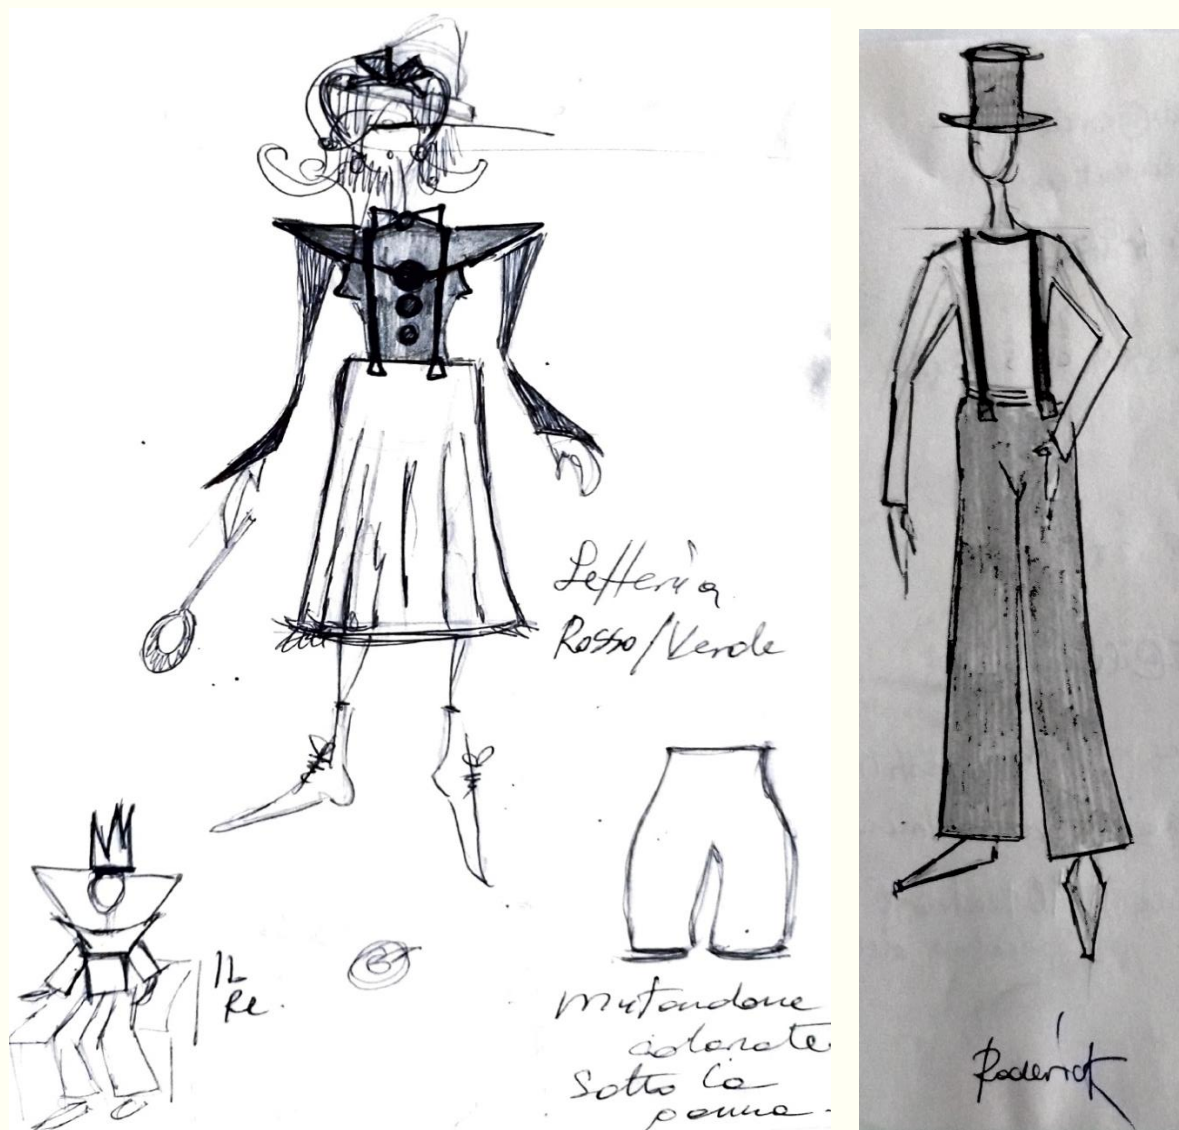 Letteria
Rosso/Verde
IL
Re.
mutandone
colorate
sotto la
Roderick